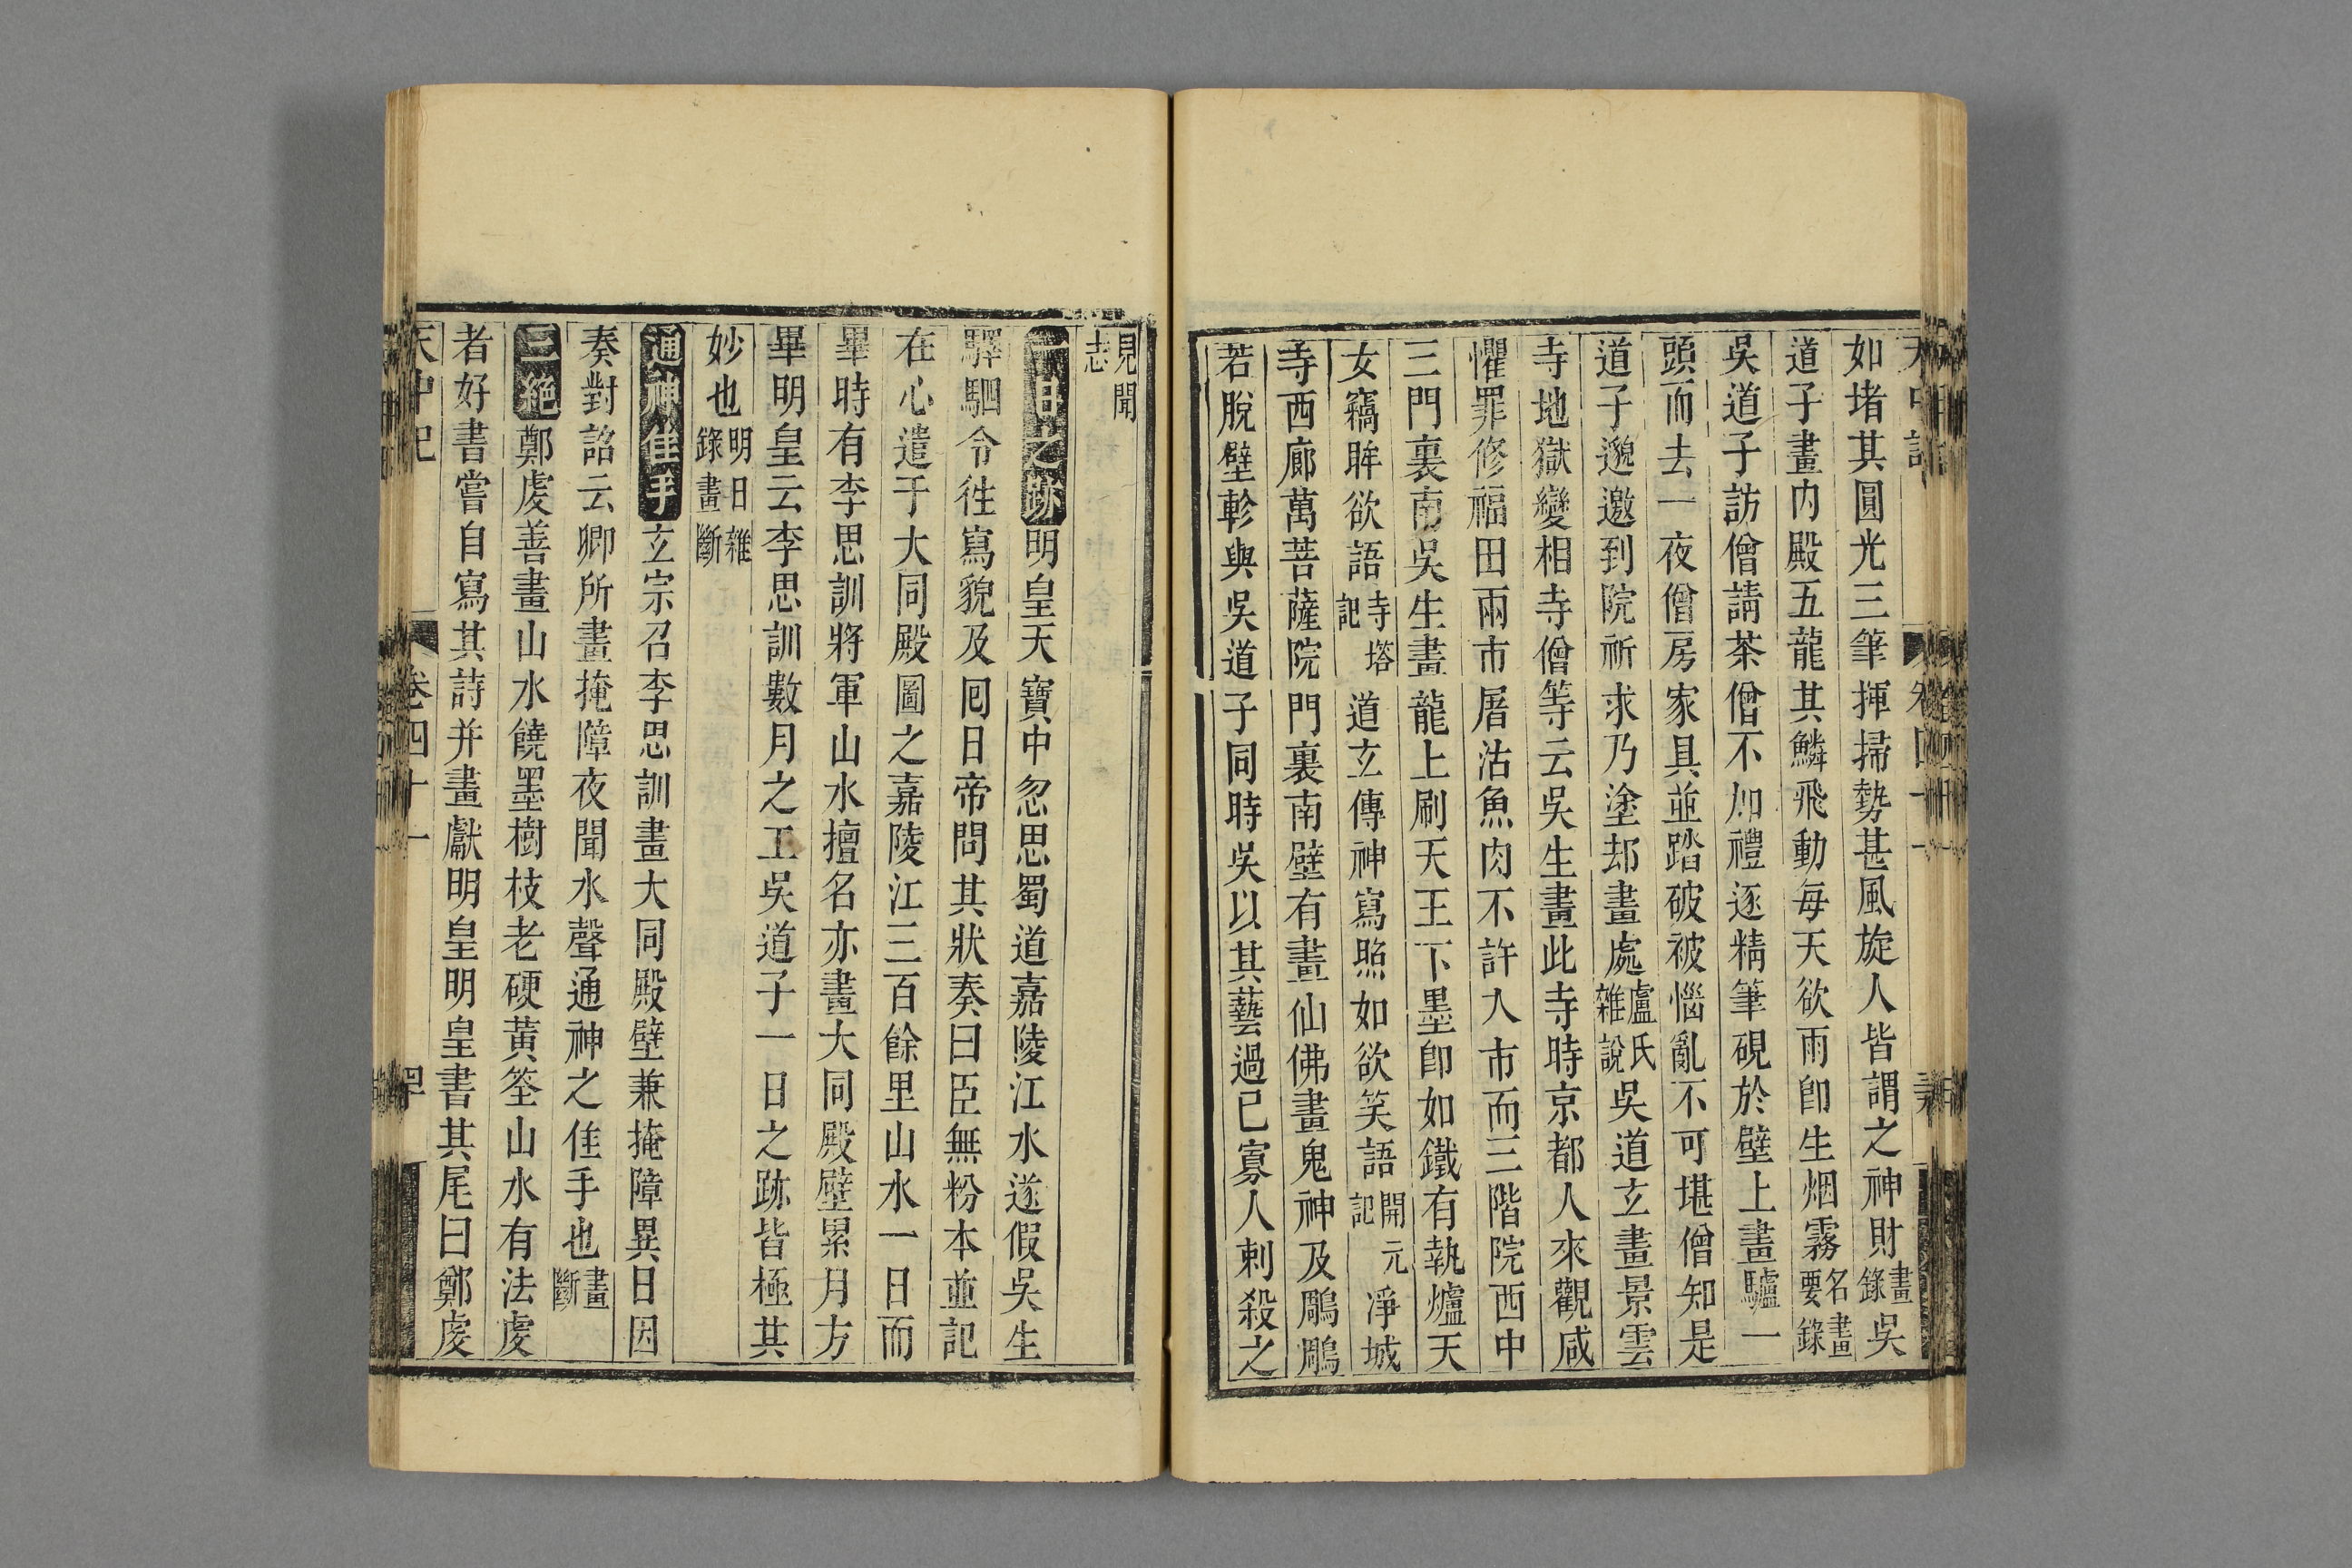 如堵其圓光三筆揮掃勢甚風旋人皆謂之神財畫錄吳
道子畫内殿五龍其鱗飛動每天欲雨卽生烟霧名畫要錄
吳道子訪僧請茶僧不加禮逐精筆硯於壁上畫驢一
頭而去一夜僧房家具並踏破被惱亂不可堪僧知是
道子邈邀到院祈求乃塗却畫處盧氏雜說吳道玄畫景雲
寺地獄變相寺僧等云吳生畫此寺時京都人來觀咸
懼罪修福田兩市屠沽魚肉不許入市而三階院西中
三門裏南吳生畫龍上刷天王下墨卽如鐵有執爐天
女竊眸欲語寺塔記道玄傳神寫照如欲笑語開元記淨城
寺西廊萬菩薩院門裏南壁有畫仙佛畫鬼神及鵰鵰
若脫壁軫與吳道子同時吳以其藝過已寡人刺殺之
見聞志
二日之跡明皇天寶中忽思蜀道嘉陵江水遂假吳生
驛駟令徃寫貌及囘日帝問其狀奏曰臣無粉本並記
在心遣于大同殿圖之嘉陵江三百餘里山水一日而
畢時有李思訓將軍山水擅名亦畫大同殿壁累月方
畢明皇云李思訓數月之工吳道子一日之跡皆極其
妙也明日雜錄畫斷
通神佳手玄宗召李思訓畫大同殿壁兼掩障異日因
奏對詔云卿所畫掩障夜聞水聲通神之佳手也畫斷
三絶鄭虔善畫山水饒墨樹枝老硬黃筌山水有法虔
者好書嘗自寫其詩并畫獻明皇明皇書其尾曰鄭虔
天中記 卷四十一